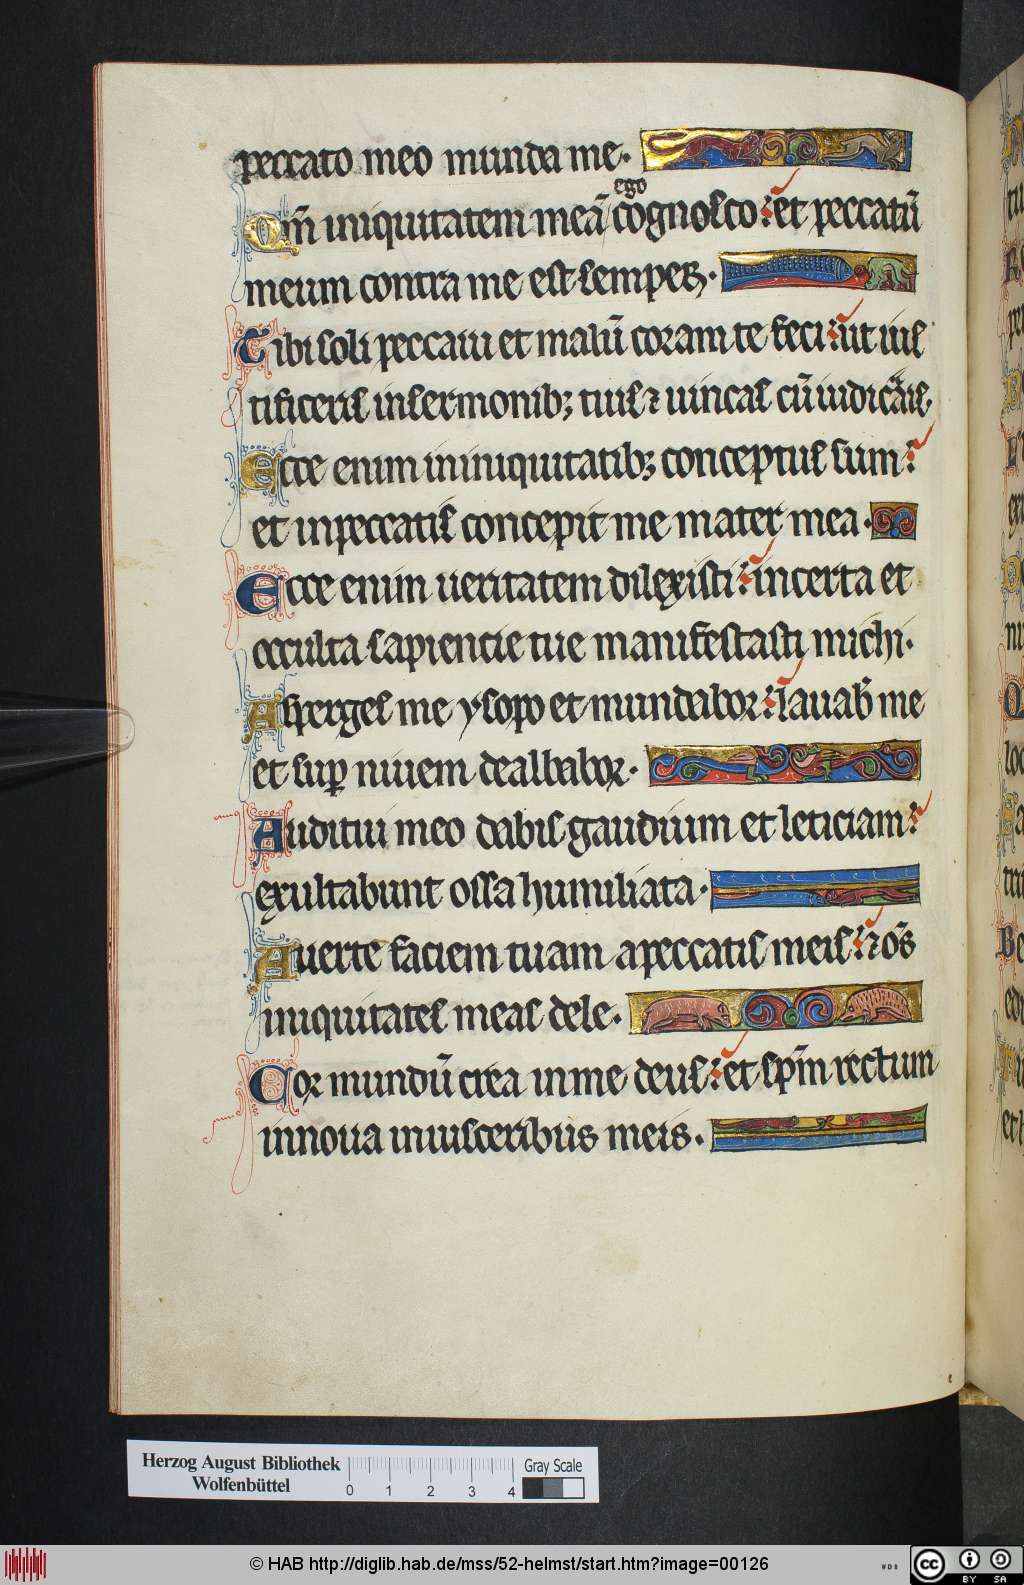 peccato meo munda me.
Qm̄ iniquitatem meā ego cognosco: et peccatū
meum contra me est semper.
Tibi soli peccaui et malū coram te feci: ut ius
tificeris in sermonibꝫ tuis ⁊ uincas cū iudicāis.
Ecce enim in iniquitatibꝫ conceptus sum:
et in peccatis concepit me mater mea.
Ecce enim ueritatem dilexisti: incerta et
occulta sapientie tue manifestasti michi.
Asperges me ysopo et mundabor: lauab̄ me
et suꝑ niuem dealbabor.
Auditui meo dabis gaudium et leticiam:
exultabunt ossa humiliata.
Auerte faciem tuam a peccatis meis: ⁊ om̄s
iniquitates meas dele.
Cor mundū crea in me deus: et spm̄ rectum
innoua in uisceribus meis.
Herzog August Bibliothek
Wolfenbüttel
0 1 2 3 4
Gray Scale
© HAB http://diglib.hab.de/mss/52-helmst/start.htm?image=00126
WDB
cc BY SA